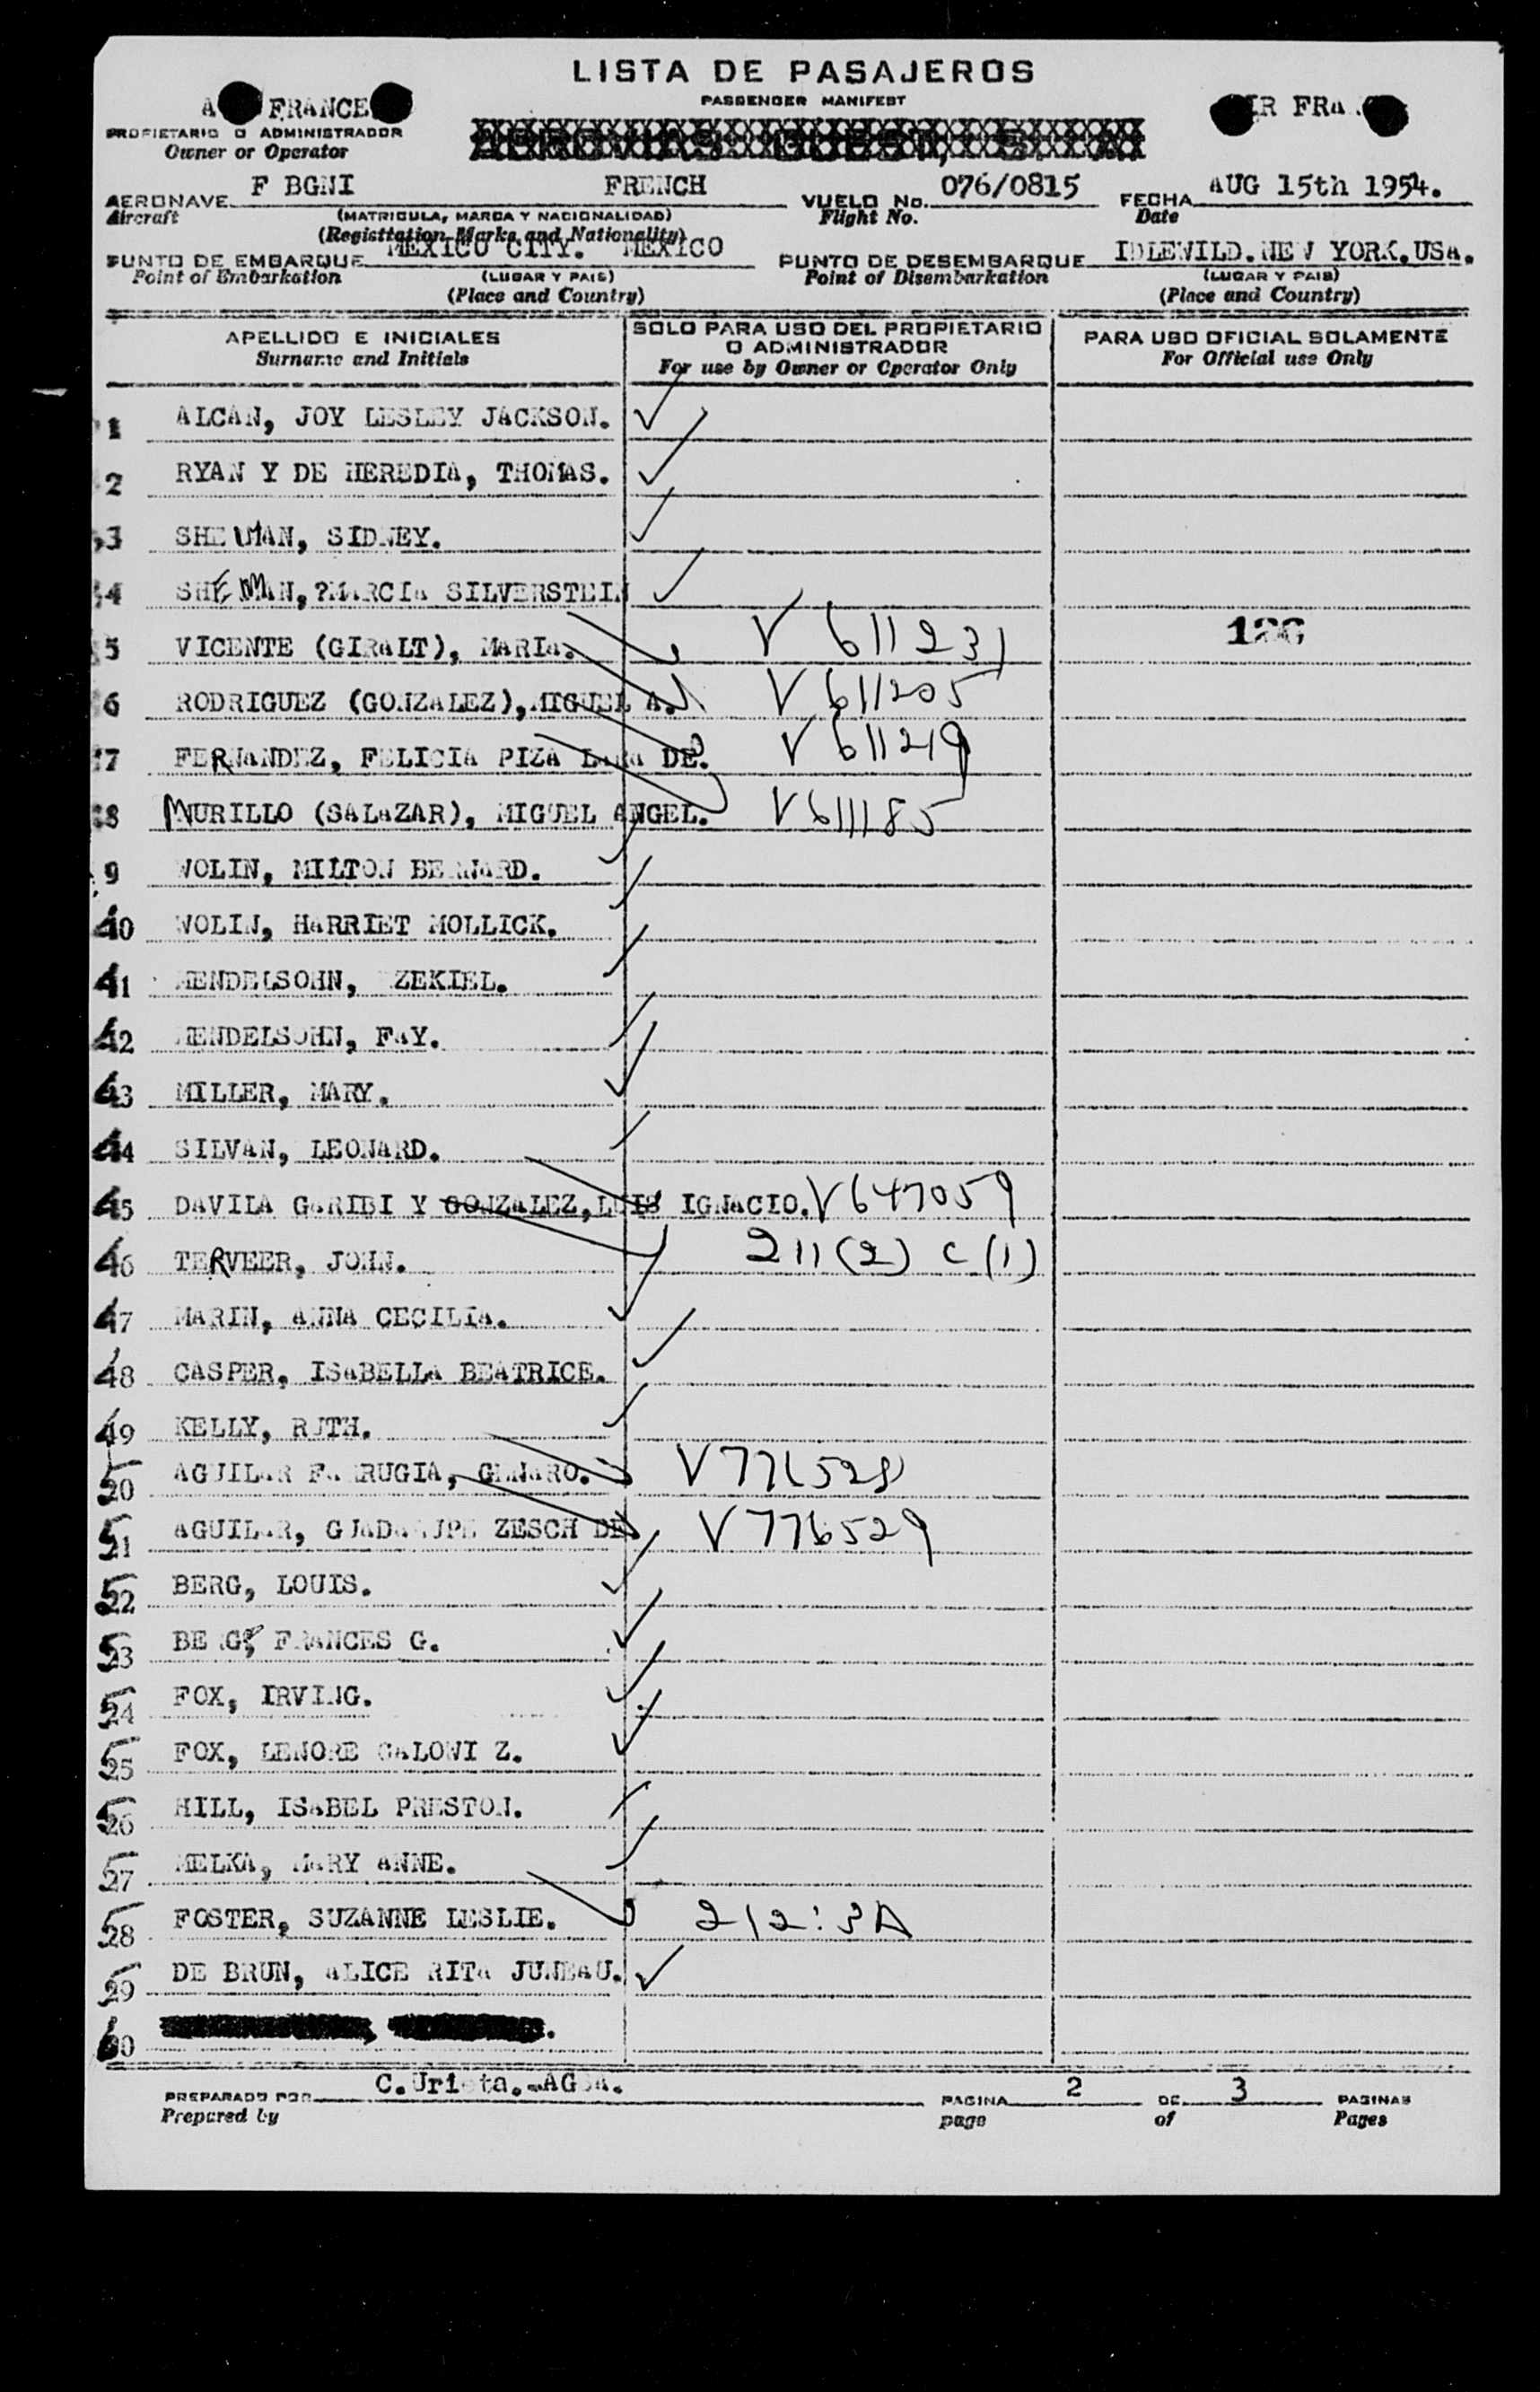 LISTA DE PASAJEROS
PASSENGER MANIFEST
A FRANCE
IR FRA
PROPIETARIO O ADMINISTRADOR
Owner or Operator
AEROVIAS GUEST, S. A.
AERONAVE F BGNI FRENCH VUELO No. 076/0815 FECHA AUG 15th 1954.
Aircraft (MATRICULA, MARCA Y NACIONALIDAD) Flight No. Date
(Registration Marks and Nationality)
PUNTO DE EMBARQUE MEXICO CITY. MEXICO PUNTO DE DESEMBARQUE IDLEWILD.NEW YORK.USA.
Point of Embarkation (LUGAR Y PAIS) Point of Disembarkation (LUGAR Y PAIS)
(Place and Country) (Place and Country)
APELLIDO E INICIALES SOLO PARA USO DEL PROPIETARIO O ADMINISTRADOR PARA USO OFICIAL SOLAMENTE
Surname and Initials For use by Owner or Operator Only For Official use Only
1 ALCAN, JOY LESLEY JACKSON. ✓
2 RYAN Y DE HEREDIA, THOMAS. ✓
3 SHEUMAN, SIDNEY. ✓
4 SHEMAN, ?MARCIA SILVERSTEIN ✓
5 VICENTE (GIRALT), MARIA. V 611231
6 RODRIGUEZ (GONZALEZ), MIGUEL A. V 611205
7 FERNANDEZ, FELICIA PIZA LARA DE. V 611219
8 MURILLO (SALAZAR), MIGUEL ANGEL. V611185
9 WOLIN, MILTON BERNARD. ✓
40 WOLIN, HARRIET MOLLICK. ✓
41 MENDELSOHN, EZEKIEL. ✓
42 MENDELSOHN, FAY. ✓
43 MILLER, MARY. ✓
44 SILVAN, LEONARD. ✓
45 DAVILA GARIBI Y GONZALEZ, LUIS IGNACIO. V647059
46 TERVEER, JOHN. 211(2) C(1)
47 MARIN, ANNA CECILIA. ✓
48 CASPER, ISABELLA BEATRICE. ✓
49 KELLY, RUTH. ✓
50 AGUILAR FARRUGIA, GENARO. V776528
51 AGUILAR, GUADALUPE ZESCH DE. V776529
52 BERG, LOUIS. ✓
53 BERG, FRANCES G. ✓
54 FOX, IRVING. ✓
55 FOX, LENORE GALOWI Z. ✓
56 HILL, ISABEL PRESTON. ✓
57 MELKA, MARY ANNE. ✓
58 FOSTER, SUZANNE LESLIE. 212:3A
59 DE BRUN, ALICE RITA JUNEAU. ✓
60
PREPARADO POR C.Urieta. AGSA. PAGINA 2 DE 3 PAGINAS
Prepared by page of Pages